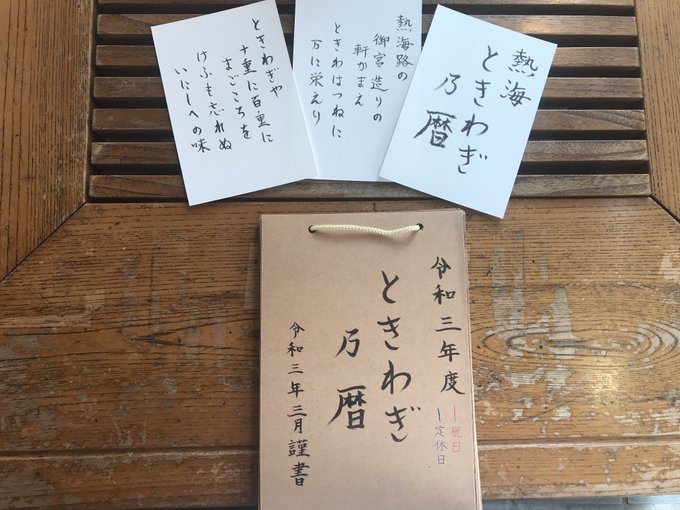 熱海
ときわぎ
乃暦
熱海路の
御宮造りの
軒がまえ
ときわはつねに
万に栄えり
ときわぎや
十重に百重に
まごころを
けふも忘れぬ
いにしへの味
令和三年度
祝日
定休日
ときわぎ
乃暦
令和三年三月謹書